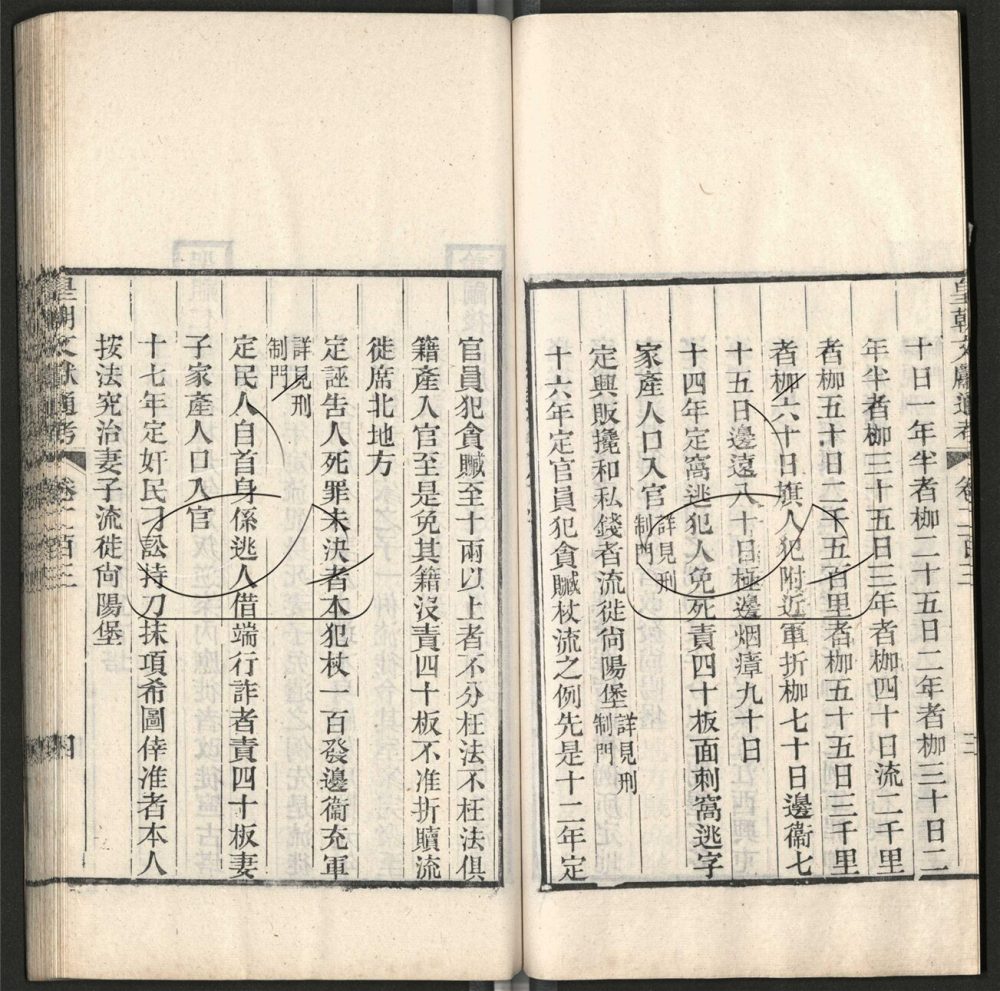 皇朝文獻通考 卷二百三 三
十日一年半者枷二十五日二年者枷三十日二
年半者枷三十五日三年者枷四十日流二千里
者枷五十日二千五百里者枷五十五日三千里
者枷六十日旗人犯附近軍折枷七十日邊衞七
十五日邊遠八十日極邊烟瘴九十日
十四年定窩逃犯人免死責四十板面刺窩逃字
家產人口入官詳見刑制門
定興販攙和私錢者流徙尙陽堡詳見刑制門
十六年定官員犯貪贓杖流之例先是十二年定
官員犯貪贓至十兩以上者不分枉法不枉法俱
籍產入官至是免其籍沒責四十板不准折贖流
徙席北地方
定誣吿人死罪未決者本犯杖一百發邊衞充軍
詳見刑制門
定民人自首身係逃人借端行詐者責四十板妻
子家產人口入官
十七年定奸民刁訟持刀抹項希圖倖准者本人
按法究治妻子流徙尙陽堡
皇朝文獻通考 卷二百三 四